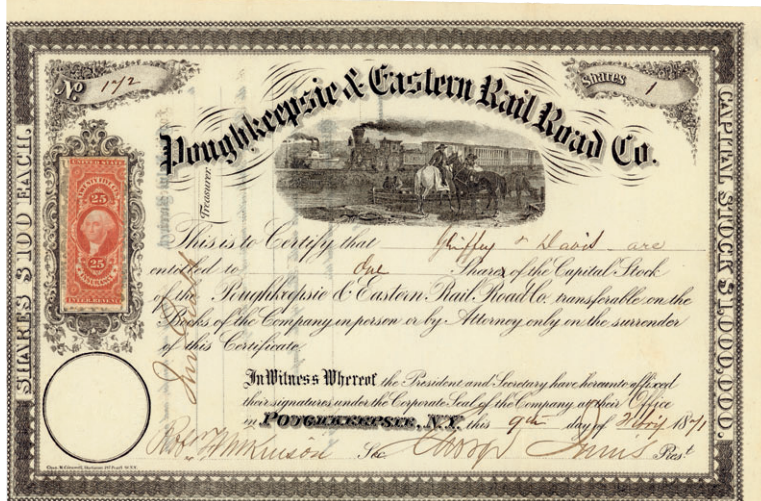 No 172
Shares 1
Poughkeepsie & Eastern Rail Road Co.
CAPITAL STOCK $1,000,000.
SHARES $100 EACH.
UNITED STATES
TWENTY FIVE CTS
25
25
INSURANCE
INTER. REVENUE
Treasurer
This is to Certify that & Davis are
entitled to One Shares of the Capital Stock
of the Poughkeepsie & Eastern Rail Road Co. transferable on the
Books of the Company in person or by Attorney only on the surrender
of this Certificate
In Witness Whereof the President and Secretary have hereunto affixed
their signatures under the Corporate Seal of the Company at their Office
in POUGHKEEPSIE, N.Y. this 9th day of 1871
Wilkinson Sec. George Innis Prest